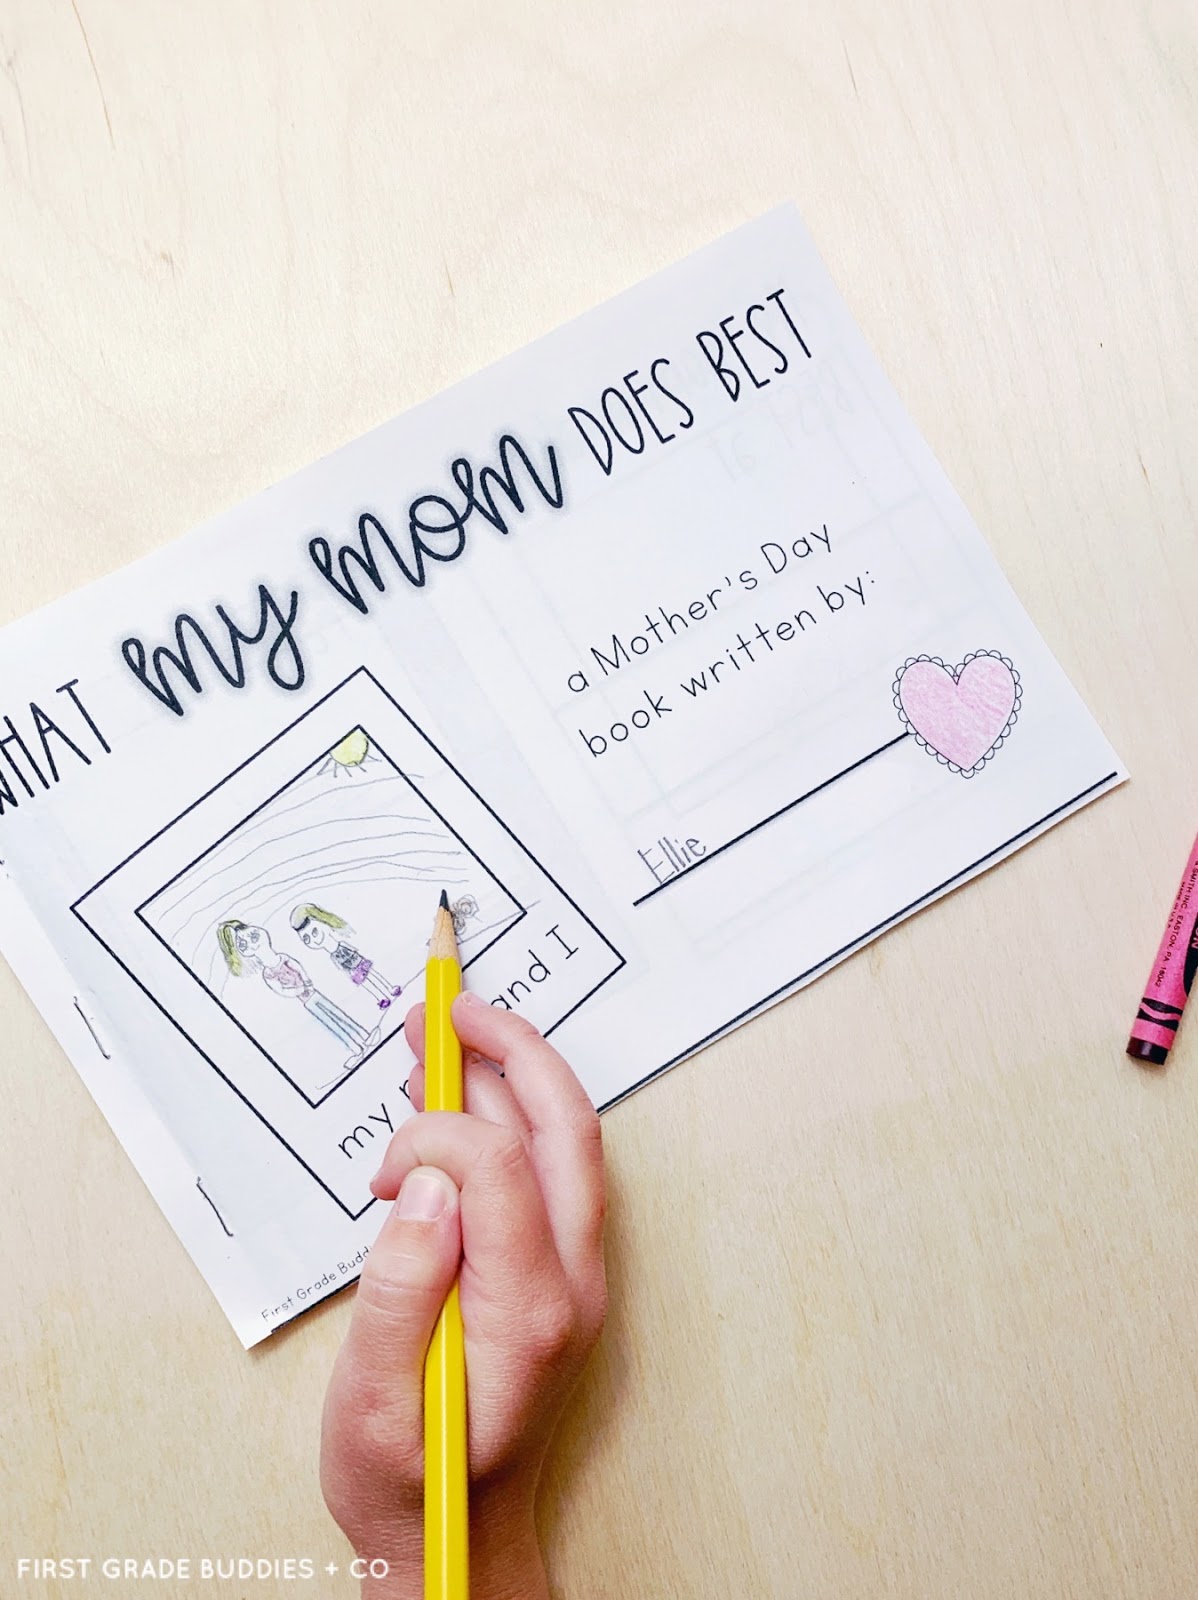 WHAT my mom DOES BEST
a Mother's Day
book written by:
Ellie
my and I
First Grade Budd
FIRST GRADE BUDDIES + CO